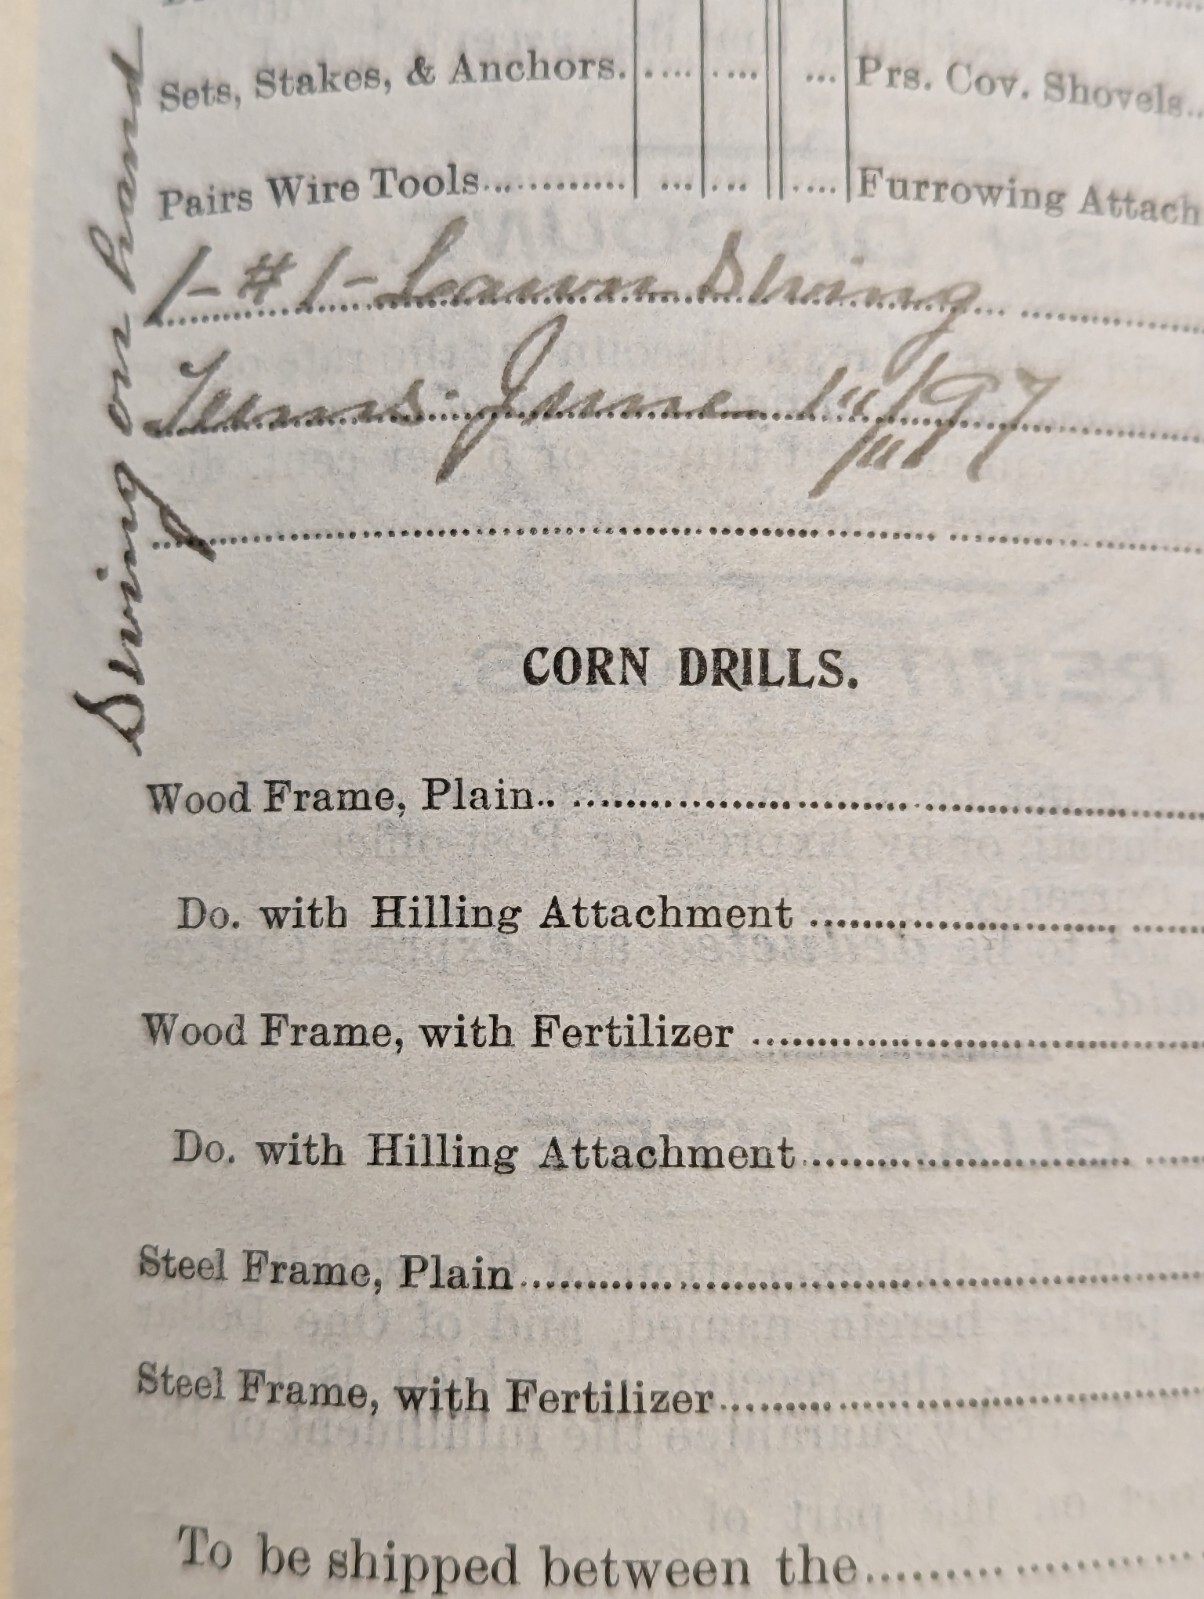 Sets, Stakes, & Anchors. .... .... ... Prs. Cov. Shovels..
Pairs Wire Tools.............. ... ... .... Furrowing Attach
1 - # 1 - Lawn Swing
Terms. June 1st/97
Swing on hand
CORN DRILLS.
Wood Frame, Plain.. ..............................
Do. with Hilling Attachment ..............................
Wood Frame, with Fertilizer ..............................
Do. with Hilling Attachment ..............................
Steel Frame, Plain ..............................
Steel Frame, with Fertilizer ..............................
To be shipped between the ....................